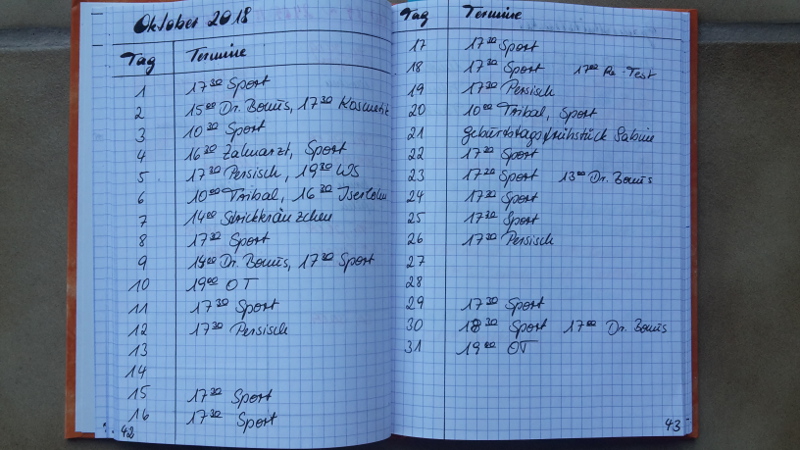 Oktober 2018
Tag Termine
1 17³⁰ Sport
2 15⁰⁰ Dr. Bonüs, 17³⁰ Kosmetik
3 10³⁰ Sport
4 16³⁰ Zahnarzt, Sport
5 17³⁰ Persisch, 19³⁰ WS
6 10⁰⁰ Tribal, 16³⁰ Iserlohn
7 14⁰⁰ Strickkränzchen
8 17³⁰ Sport
9 Dr. Bonüs, 17³⁰ Sport
10 19⁰⁰ OT
11 17³⁰ Sport
12 17³⁰ Persisch
13
14
15 17³⁰ Sport
16 17³⁰ Sport
42
Tag Termine
17 17³⁰ Sport
18 17³⁰ Sport 17⁰⁰ -Test
19 17³⁰ Persisch
20 10⁰⁰ Tribal, Sport
21 Geburtstagsfrühstück Sabine
22 17³⁰ Sport
23 17³⁰ Sport 13⁰⁰ Dr. Bonüs
24 17³⁰ Sport
25 17³⁰ Sport
26 17³⁰ Persisch
27
28
29 17³⁰ Sport
30 18³⁰ Sport 17⁰⁰ Dr. Bonüs
31 19⁰⁰ OT
43